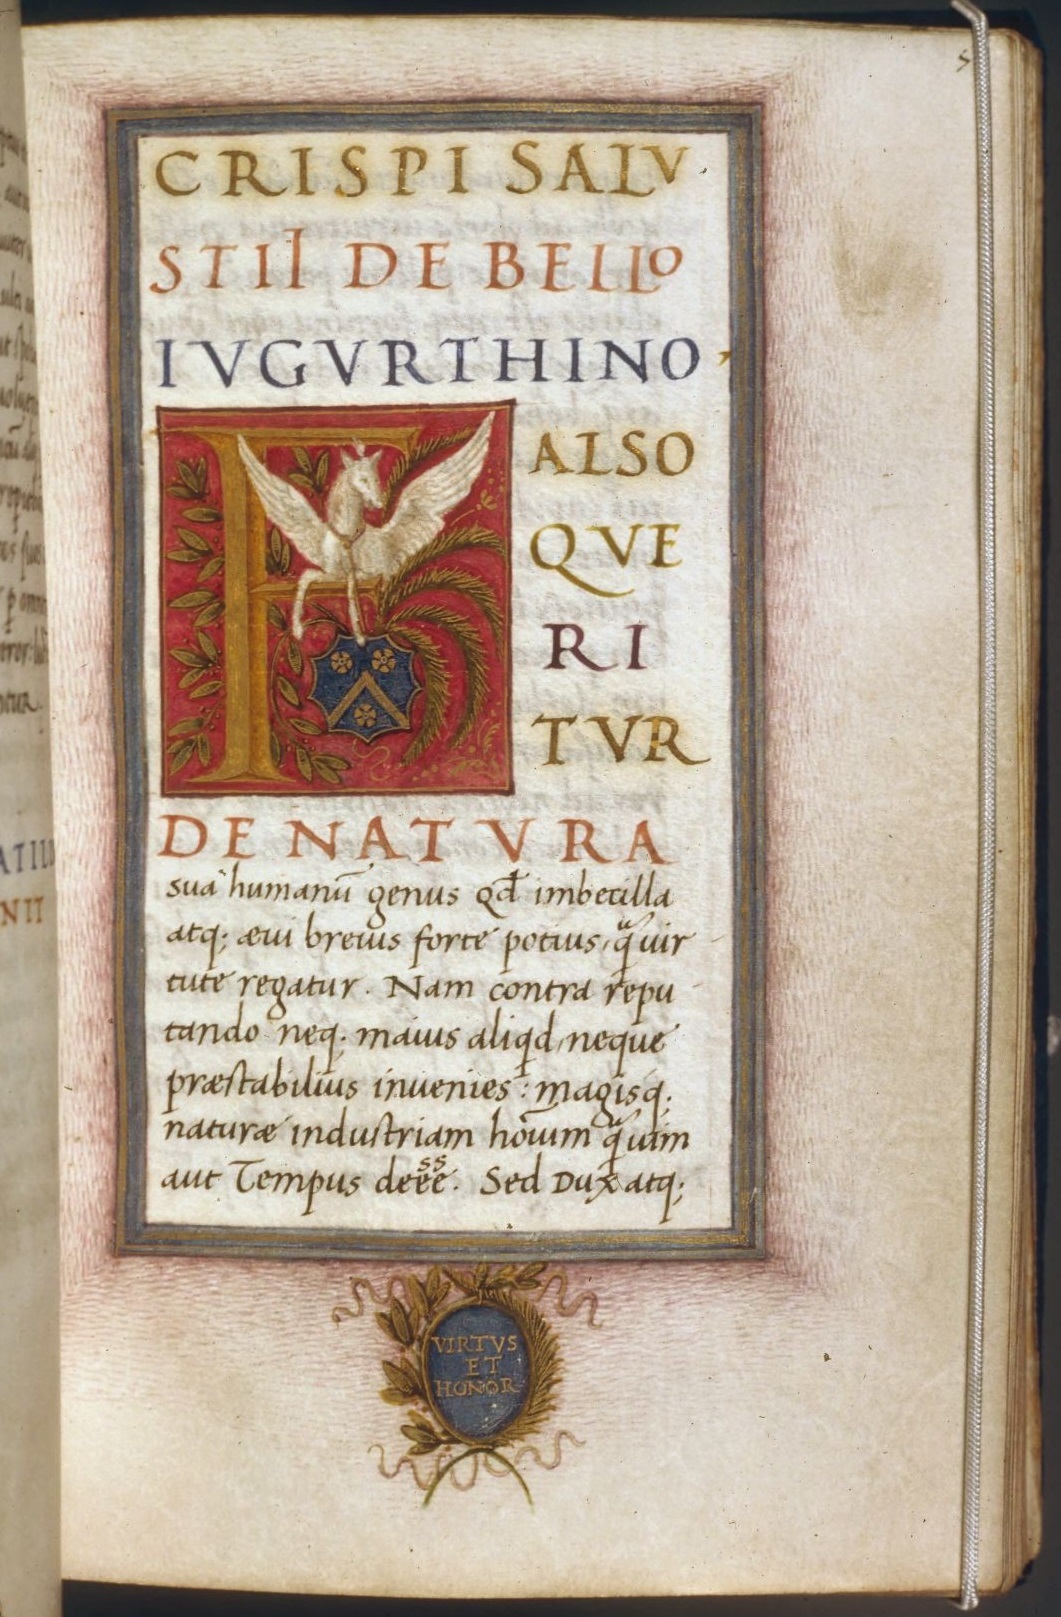 5
CRISPI SALV
STII DE BELLO
IVGVRTHINO
FALSO
QVE
RI
TVR
DE NATVRA
sua humanū genus qđ imbecilla
atq; ævi brevis forte potius, q̈uir
tute regatur. Nam contra repu
tando neq; maius aliqd, neque
præstabilius invenies: magisq;
naturæ industriam hoīum q̈uim
aut Tempus deesse. Sed Dux atq;
VIRTVS
ET
HONOR
ATILI
NII